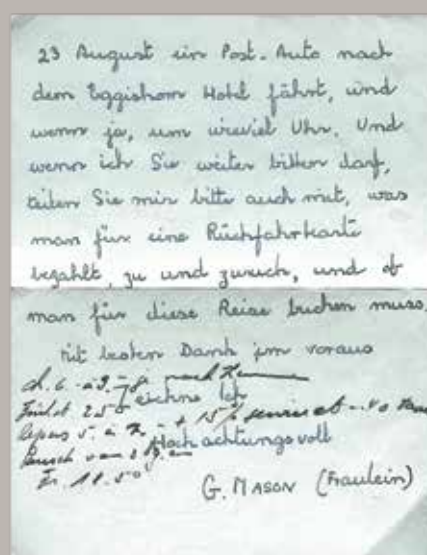 23 August ein Post-Auto nach
dem Eggishorn Hotel fährt, und
wenn ja, um wieviel Uhr. Und
wenn ich Sie weiter bitten darf,
teilen Sie mir bitte auch mit, was
man für eine Rückfahrkarte
bezahlt, zu und zurück, und ob
man für diese Reise buchen muss.
Mit besten Dank im voraus
zeichne Ich
+ 15%
Hochachtungsvoll
Fr. 11.50
G. MASON (Fraulein)